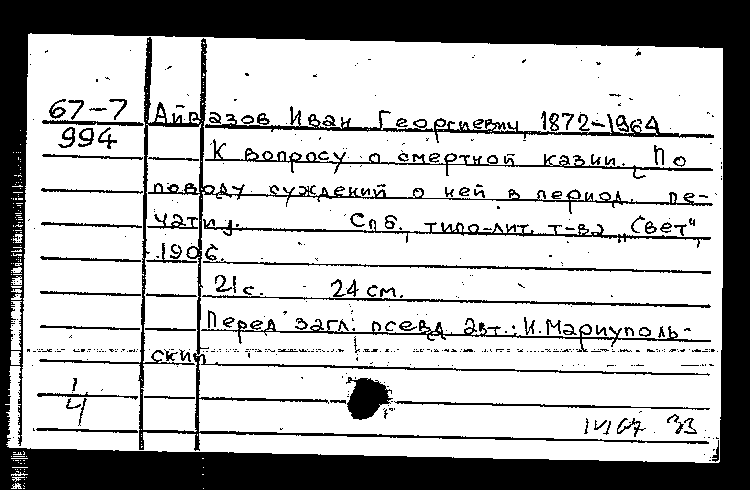 67-7 Айвазов, Иван Георгиевич, 1872-1964
994
К вопросу о смертной казни. [По
поводу суждений о ней в период. пе-
чати].   Спб., типо-лит. т-ва „Свет",
1906.
21 с.   24 см.
Перед загл. псевд. авт.: И. Мариуполь-
ский.
1/4